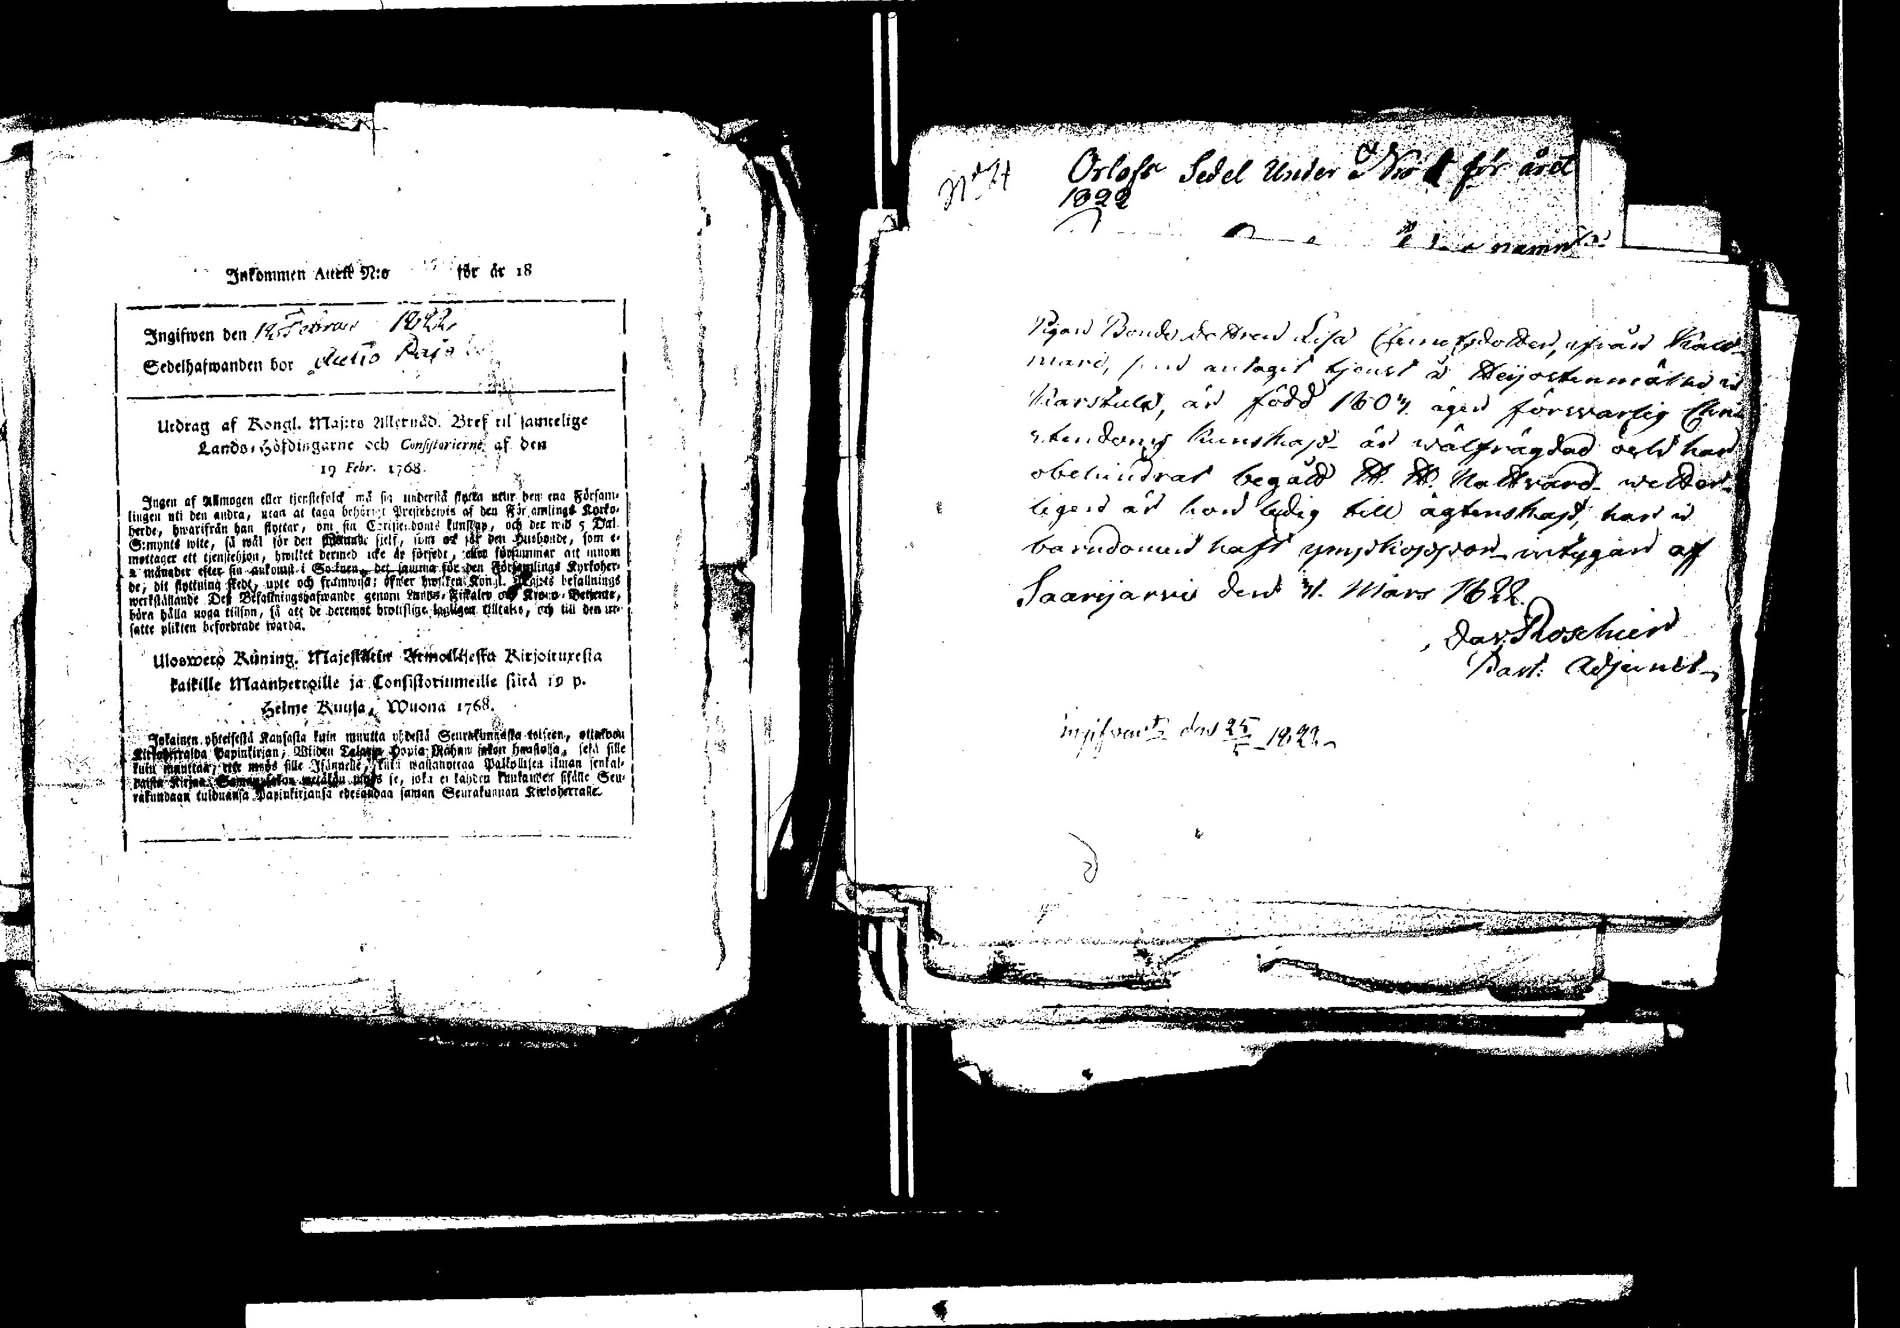 Inkommen Attest N:o för år 18
Ingifwen den 12 Februari 1822
Sedelhafwanden bor Autio
Utdrag af Kongl. Maj:ts Allernåd. Bref til samtelige
Lands-Höfdingarne och Consistorierne af den
19 Febr. 1768.
Ingen af Allmogen eller tjenstefolck må sig understå flytta utur den ena Försam-
lingen uti den andra, utan at taga behörigt Prestebewis af den Församlings Kyrko-
herde, hwarifrån han flyttar, om sin Christendoms kunskap, och det wid 5 Dal.
S:mynts wite, så wäl för den sielf, som ock för den Husbonde, som e-
mottager ett tjenstehjon, hwilket dermed icke är försedt, eller försummar att innom
2 månader efter sin ankomst i Socknen, det samma för den Församlings Kyrkoher-
de, dit flyttning skedt, upte och framwisa; öfwer hwilken Kongl. Maj:ts befallnings
werkställande Deß Befallningshafwande genom Lands-Fiskaler och Krono-Betjente,
böra hålla noga tillsyn, så att de deremot brottslige lagligen tilltalas, och till den ut-
satte plikten befordrade warda.
Uloswetö Küning. Majestätin Armollisesta Kirjoituxesta
kaikille Maanherroille ja Consistoriumeille siitä 19 p.
Helme Kuusa, Wuona 1768.
Jokainen yhteisestä Kansasta kuin muutta yhdestä Seurakunnasta toiseen, ottakoon
Kirkoherralda Papinkirjan; Wiiden Talarin Hopia Rahan sakon haastolla, sekä sille
kuin muuttaa, että myös sille Isännelle, kuin wastanottaa Palkollisen ilman senkal-
daista Kirjaa. Saman sakon wetäkön myös se, joka ei kahden kuukauden sisälle Seu-
rakundaan tulduansa Papinkirjansa edesandaa saman Seurakunnan Kirkoherralle.
Orlofs Sedel Under N:ro för året
1822
namn
Pigan Bonde dottren Lisa från Kall-
mari, som antagit tjenst å i
Karstula, är född 1803. äger förswarlig Chri-
stendoms kunskap är wälfrägdad och har
obehindrat begått H. H. Nattward wetter-
ligen är hon ledig till ägtenskap, har i
barndomen haft ympkoppor intygar af
Saarijärwi den Mars 1822.
Dav. Roschier
Past: Adjunct
ingifven den 25/5 1822